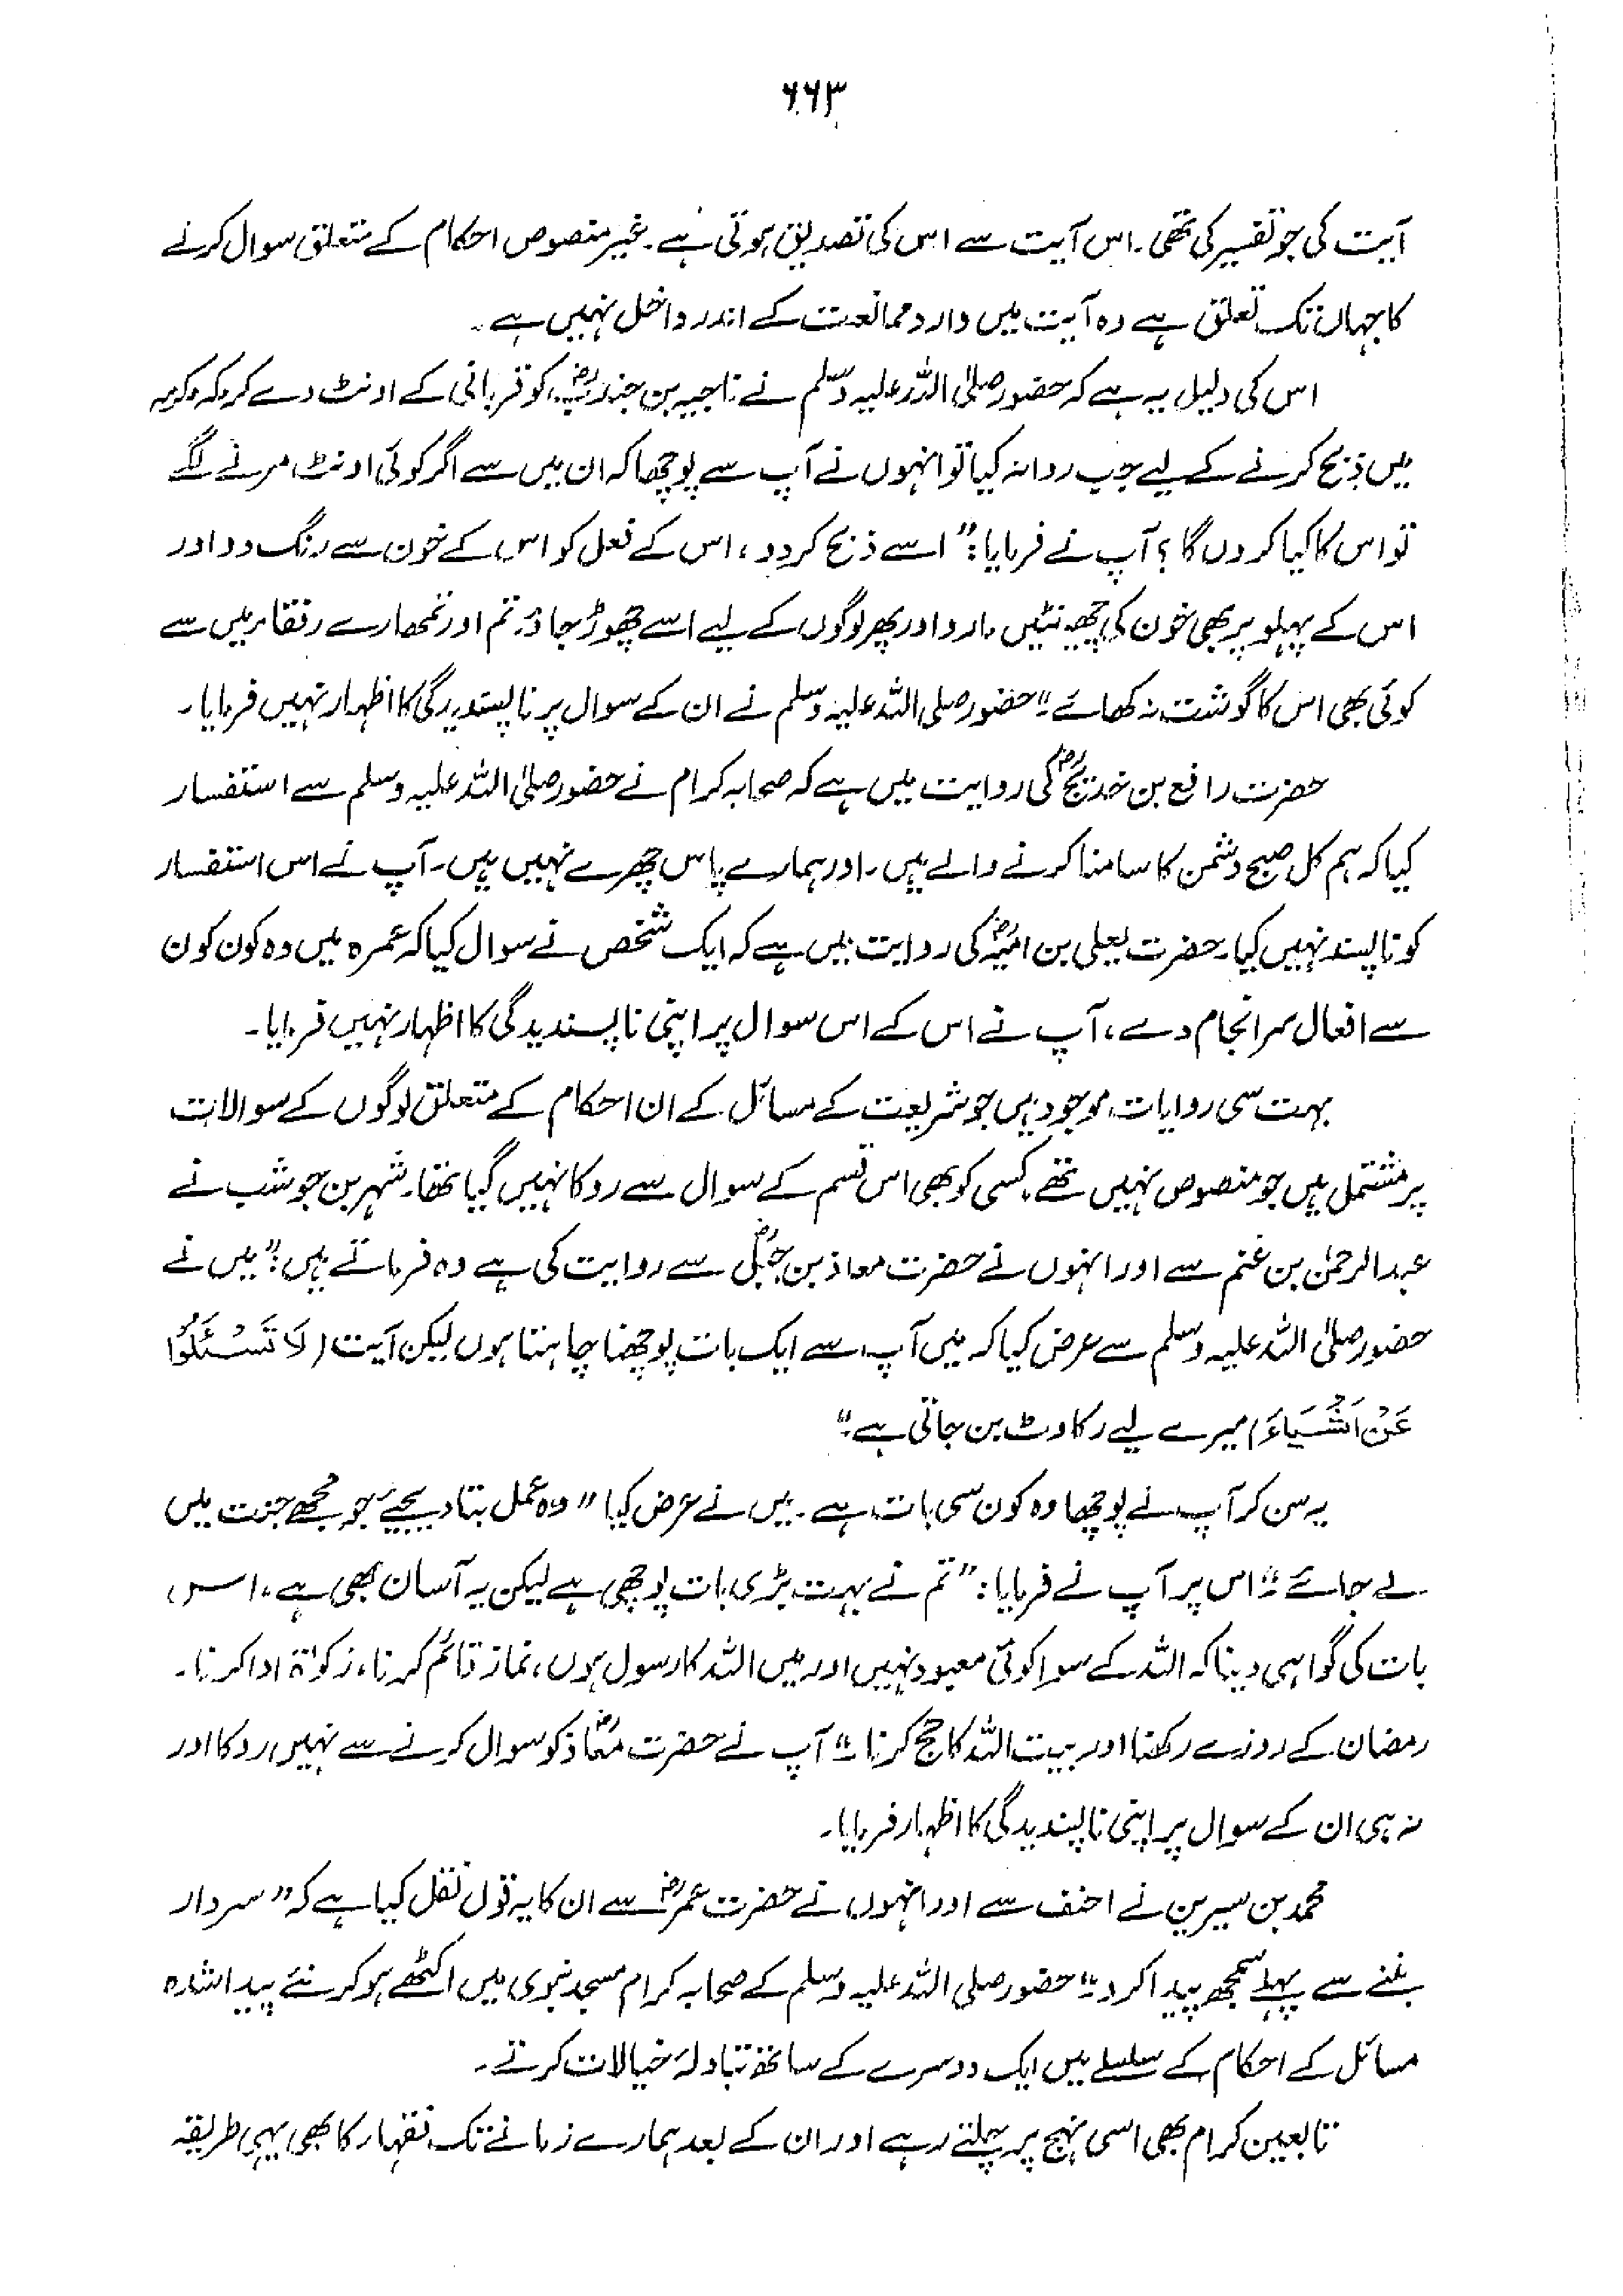 ۶۶۳
آیت کی جو تفسیر کی تھی۔ اس آیت سے اس کی تصدیق ہوتی ہے۔ غیر منصوص احکام کے متعلق سوال کرنے
کا جہاں تک تعلق ہے وہ آیت میں وارد ممانعت کے اندر داخل نہیں ہے۔
اس کی دلیل یہ ہے کہ حضور صلی اللہ علیہ وسلم نے ناجیہ بن جندبؓ کو قربانی کے اونٹ دے کر مکہ مکرمہ
میں ذبح کرنے کے لیے جب روانہ کیا تو انہوں نے آپ سے پوچھا کہ ان میں سے اگر کوئی اونٹ مرنے لگے
تو اس کا کیا کروں گا؟ آپ نے فرمایا: "اسے ذبح کر دو، اس کے نعل کو اس کے خون سے رنگ دو اور
اس کے پہلو پر بھی خون کی چھینٹیں مارو اور پھر لوگوں کے لیے اسے چھوڑ جاؤ۔ تم اور تمھارے رفقاء میں سے
کوئی بھی اس کا گوشت نہ کھائے۔" حضور صلی اللہ علیہ وسلم نے ان کے سوال پر ناپسندیدگی کا اظہار نہیں فرمایا۔
حضرت رافع بن خدیجؓ کی روایت میں ہے کہ صحابہ کرام نے حضور صلی اللہ علیہ وسلم سے استفسار
کیا کہ ہم کل صبح دشمن کا سامنا کرنے والے ہیں۔ اور ہمارے پاس چھرے نہیں ہیں۔ آپ نے اس استفسار
کو ناپسند نہیں کیا۔ حضرت یعلی بن امیہؓ کی روایت میں ہے کہ ایک شخص نے سوال کیا کہ عمرہ میں وہ کون کون
سے افعال سرانجام دے، آپ نے اس کے اس سوال پر اپنی ناپسندیدگی کا اظہار نہیں فرمایا۔
بہت سی روایات موجود ہیں جو شریعت کے مسائل کے ان احکام کے متعلق لوگوں کے سوالات
پر مشتمل ہیں جو منصوص نہیں تھے۔ کسی کو بھی اس قسم کے سوال سے روکا نہیں گیا تھا۔ شہر بن حوشب نے
عبدالرحمٰن بن غنم سے اور انہوں نے حضرت معاذ بن جبلؓ سے روایت کی ہے وہ فرماتے ہیں: "میں نے
حضور صلی اللہ علیہ وسلم سے عرض کیا کہ میں آپ سے ایک بات پوچھنا چاہتا ہوں لیکن آیت (لَا تَسْئَلُوْا
عَنْ اَشْيَاءَ) میرے لیے رکاوٹ بن جاتی ہے۔"
یہ سن کر آپ نے پوچھا وہ کون سی بات ہے۔ میں نے عرض کیا "وہ عمل بتا دیجیے جو مجھے جنت میں
لے جائے۔" اس پر آپ نے فرمایا: "تم نے بہت بڑی بات پوچھی ہے لیکن یہ آسان بھی ہے، اس
بات کی گواہی دینا کہ اللہ کے سوا کوئی معبود نہیں اور میں اللہ کا رسول ہوں، نماز قائم کرنا، زکوٰۃ ادا کرنا۔
رمضان کے روزے رکھنا اور بیت اللہ کا حج کرنا۔" آپ نے حضرت معاذؓ کو سوال کرنے سے نہیں روکا اور
نہ ہی ان کے سوال پر اپنی ناپسندیدگی کا اظہار فرمایا۔
محمد بن سیرین نے احنف سے اور انہوں نے حضرت عمرؓ سے ان کا یہ قول نقل کیا ہے کہ "سردار
بننے سے پہلے سمجھ پیدا کرو۔" حضور صلی اللہ علیہ وسلم کے صحابہ کرام مسجد نبوی میں اکٹھے ہو کر نئے پیدا شدہ
مسائل کے احکام کے سلسلے میں ایک دوسرے کے ساتھ تبادلۂ خیالات کرتے۔
تابعین کرام بھی اسی نہج پر چلتے رہے اور ان کے بعد ہمارے زمانے تک فقہاء کا بھی یہی طریقہ